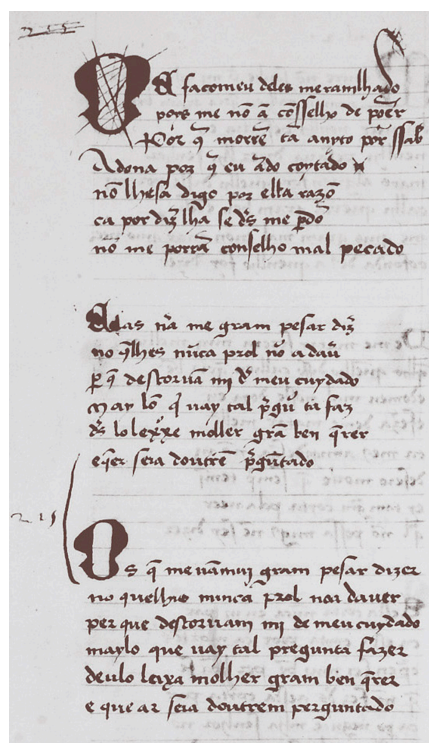 215
E facomeu deles meramilhado
poys me nō ā cōsselho de poer
Por q̄ morrē tā muyto por ssab̄
A dona por q̄ eu ādo coytado
nō lhesa digo por ella razō
ca por diz̄ lha se d̄s me p̄dō
nō me porrā conselho mal pecado
Mas n̄a me gram pesar diz̄
no q̄lhes nūca prol nō a dav̄
p̄ q̄ destorvā mi d̄ meu cuydado
May lō q̄ vay tal p̄gūta faz
d̄s lo leyxe moller grā ben q̄rer
seia doutrē p̄gūtado
215
Os q̄ me vam mui gram pesar dizer
no quelhis nunca prol nai daver
per que destorvam mi de meu cuydado
maylo que vay tal pregunta fazer
deulo leixa molher gram ben q̄rer
e que ar seia doutrem perguntado